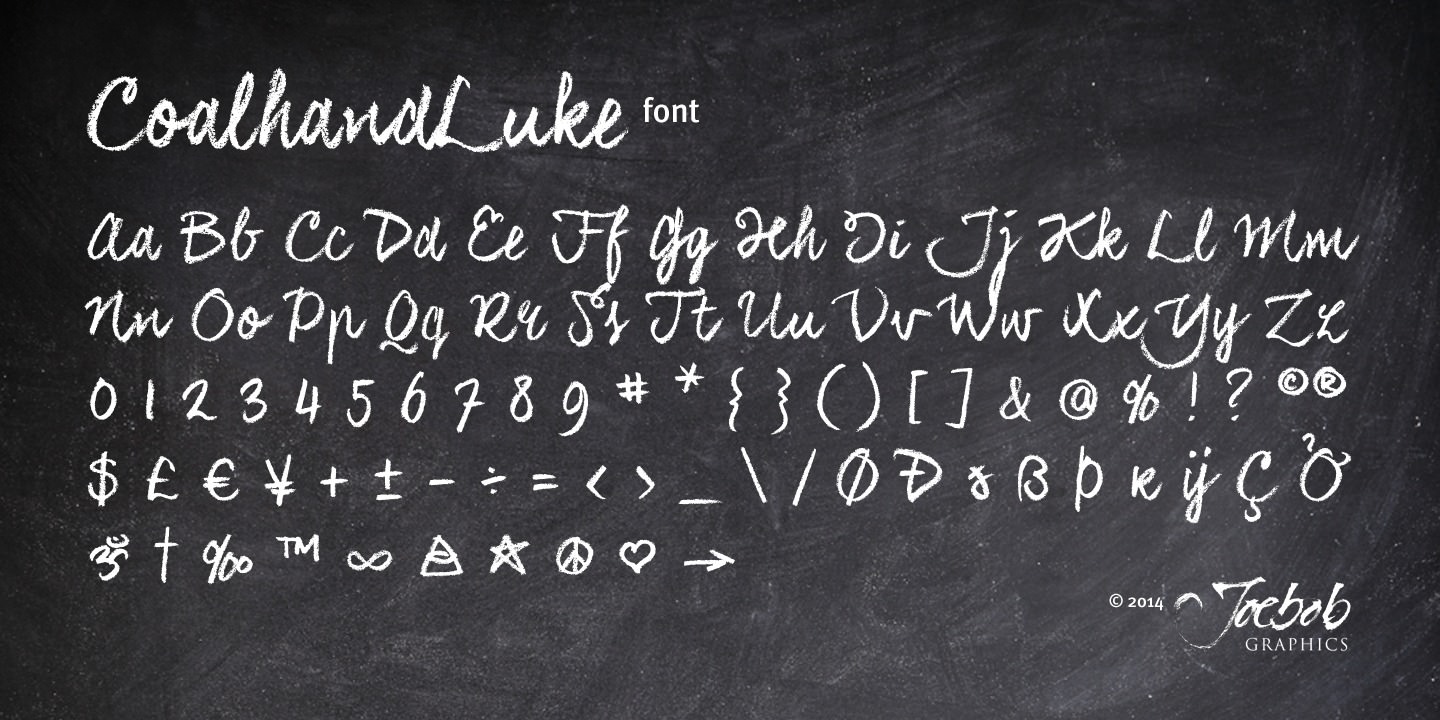 CoalhandLuke font
Aa Bb Cc Dd Ee Ff Gg Hh Ii Jj Kk Ll Mm
Nn Oo Pp Qq Rr Ss Tt Uu Vv Ww Xx Yy Zz
0 1 2 3 4 5 6 7 8 9 # * { } ( ) [ ] & @ % ! ? © ®
$ £ € ¥ + ± − ÷ = < > _ \ / Ø Ð ß þ ĸ ÿ Ç Ở
ॐ † ‰ ™ ∞ ☮ ♡ →
© 2014 Joebob
GRAPHICS